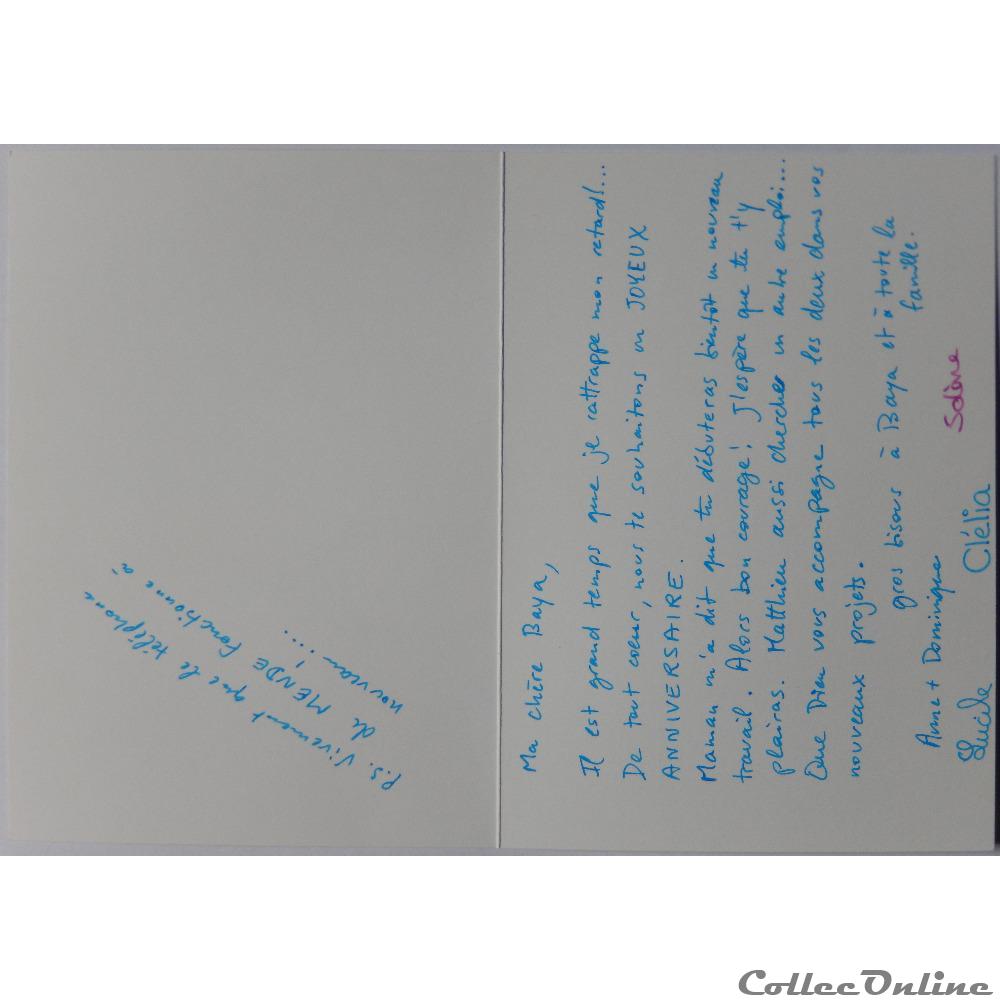 Ma chère Baya,
Il est grand temps que je rattrappe mon retard!...
De tout coeur, nous te souhaitons un JOYEUX
ANNIVERSAIRE.
Maman m'a dit que tu débuteras bientôt un nouveau
travail. Alors bon courage! J'espère que tu t'y
plairas. Matthieu aussi cherche un autre emploi...
Que Dieu vous accompagne tous les deux dans vos
nouveaux projets.
gros bisous à Baya et à toute la
famille.
Anne + Dominique
Lucile Clélia Solène
P.S. Vivement que le téléphone
de MENDE fonctionne à
nouveau!...
CollecOnline